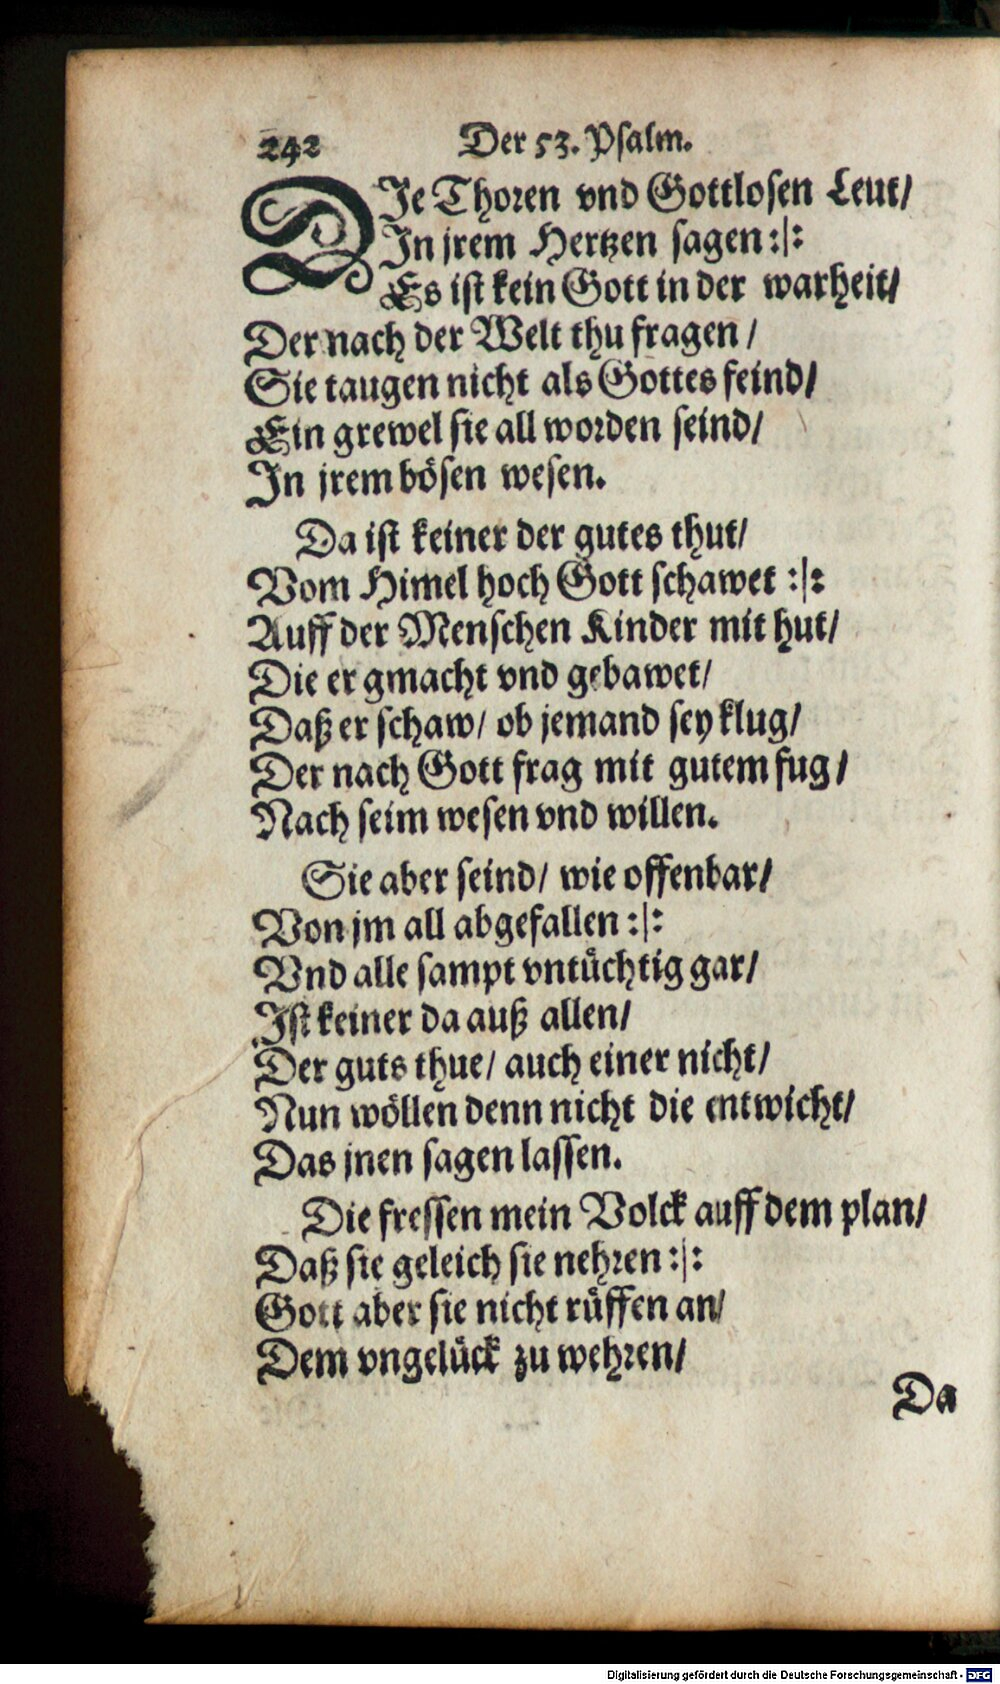 242 Der 53. Psalm.
DJe Thoren vnd Gottlosen Leut/
Jn jrem Hertzen sagen :|:
Es ist kein Gott in der warheit/
Der nach der Welt thu fragen /
Sie taugen nicht als Gottes feind/
Ein grewel sie all worden seind/
Jn jrem bösen wesen.
Da ist keiner der gutes thut/
Vom Himel hoch Gott schawet :|:
Auff der Menschen Kinder mit hut/
Die er gmacht vnd gebawet/
Daß er schaw/ ob jemand sey klug/
Der nach Gott frag mit gutem fug/
Nach seim wesen vnd willen.
Sie aber seind/ wie offenbar/
Von jm all abgefallen :|:
Vnd alle sampt vntüchtig gar/
Jst keiner da auß allen/
Der guts thue/ auch einer nicht/
Nun wöllen denn nicht die entwicht/
Das jnen sagen lassen.
Die fressen mein Volck auff dem plan/
Daß sie geleich sie nehren :|:
Gott aber sie nicht rüffen an/
Dem vngelück zu wehren/
Da
Digitalisierung gefördert durch die Deutsche Forschungsgemeinschaft - DFG